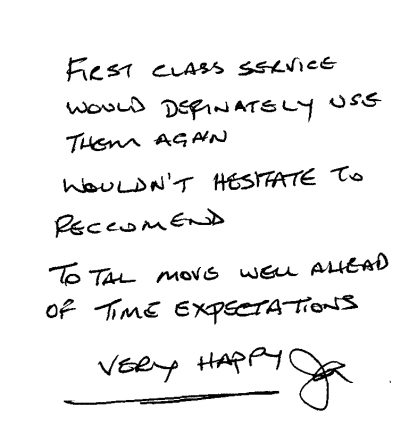 FIRST CLASS SERVICE
WOULD DEFINATELY USE
THEM AGAIN
WOULDN'T HESITATE TO
RECCOMEND
TOTAL MOVE WELL AHEAD
OF TIME EXPECTATIONS
VERY HAPPY